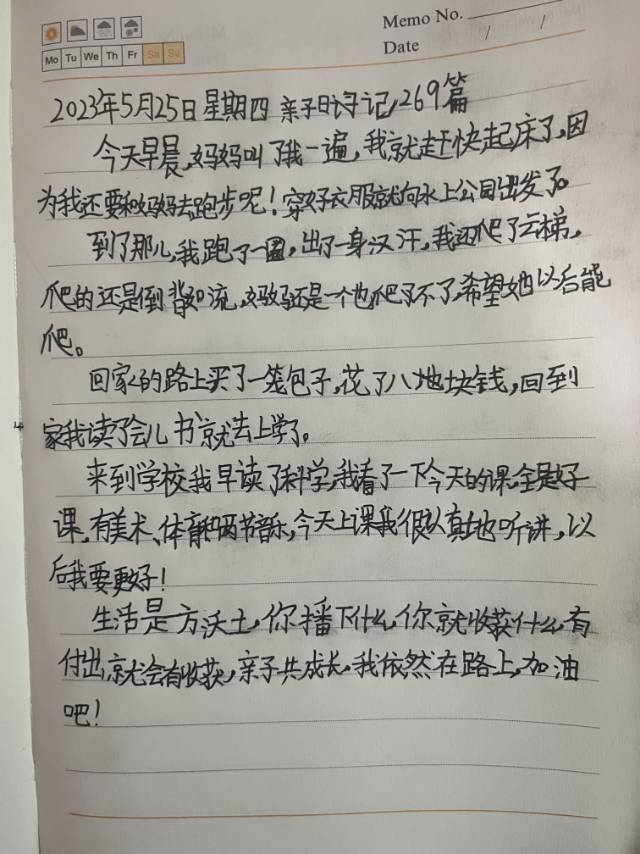 Memo No.
Mo Tu We Th Fr Sa Su
Date / /
2023年5月25日星期四 亲子日记269篇
今天早晨,妈妈叫了我一遍,我就赶快起床了,因
为我还要和妈妈去跑步呢!穿好衣服就向水上公园出发了。
到了那儿,我跑了一圈,出了一身汉汗,我还爬了云梯,
爬的还是倒背如流,妈妈还是一个也爬不了,希望她以后能
爬。
回家的路上买了一笼包子,花了八块钱,回到
家我读了会儿书就去上学了。
来到学校我早读了科学,我看了一下今天的课全是好
课,有美术、体育和两节音乐,今天上课我很认真地听讲,以
后我要更好!
生活是一方沃土,你播下什么,你就收获什么,有
付出就会有收获,亲子共成长,我依然在路上,加油
吧!